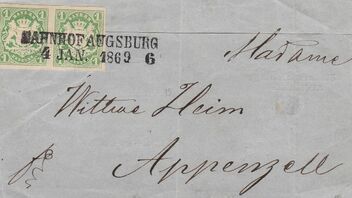 1 1 1 1
BAHNHOF AUGSBURG
4 JAN. 1869 6
Madame
Wittwe Heim
Appenzell